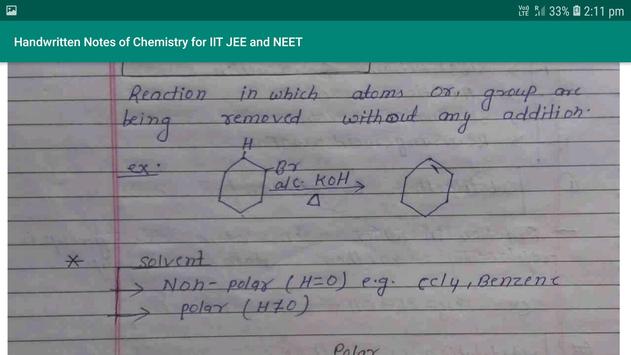 Vo) LTE R 33% 2:11 pm
Handwritten Notes of Chemistry for IIT JEE and NEET
Reaction in which atoms or, group are
being removed without any addition.
ex. H
Br
alc. KOH
Δ
* solvent
→ Non-polar (H=0) e.g. ccly, Benzene
→ polar (H≠0)
Polar